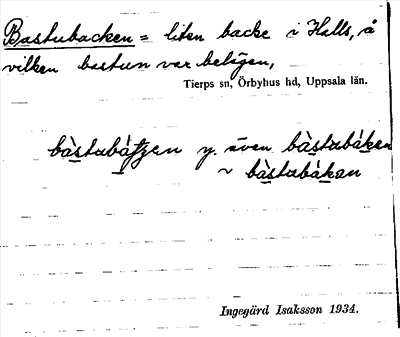 Bastubacken = liten backe i Halls, å
vilken bastun var belägen,
Tierps sn, Örbyhus hd, Uppsala län.
y. även bàstubákan
~ bàstubákan
Ingegärd Isaksson 1934.